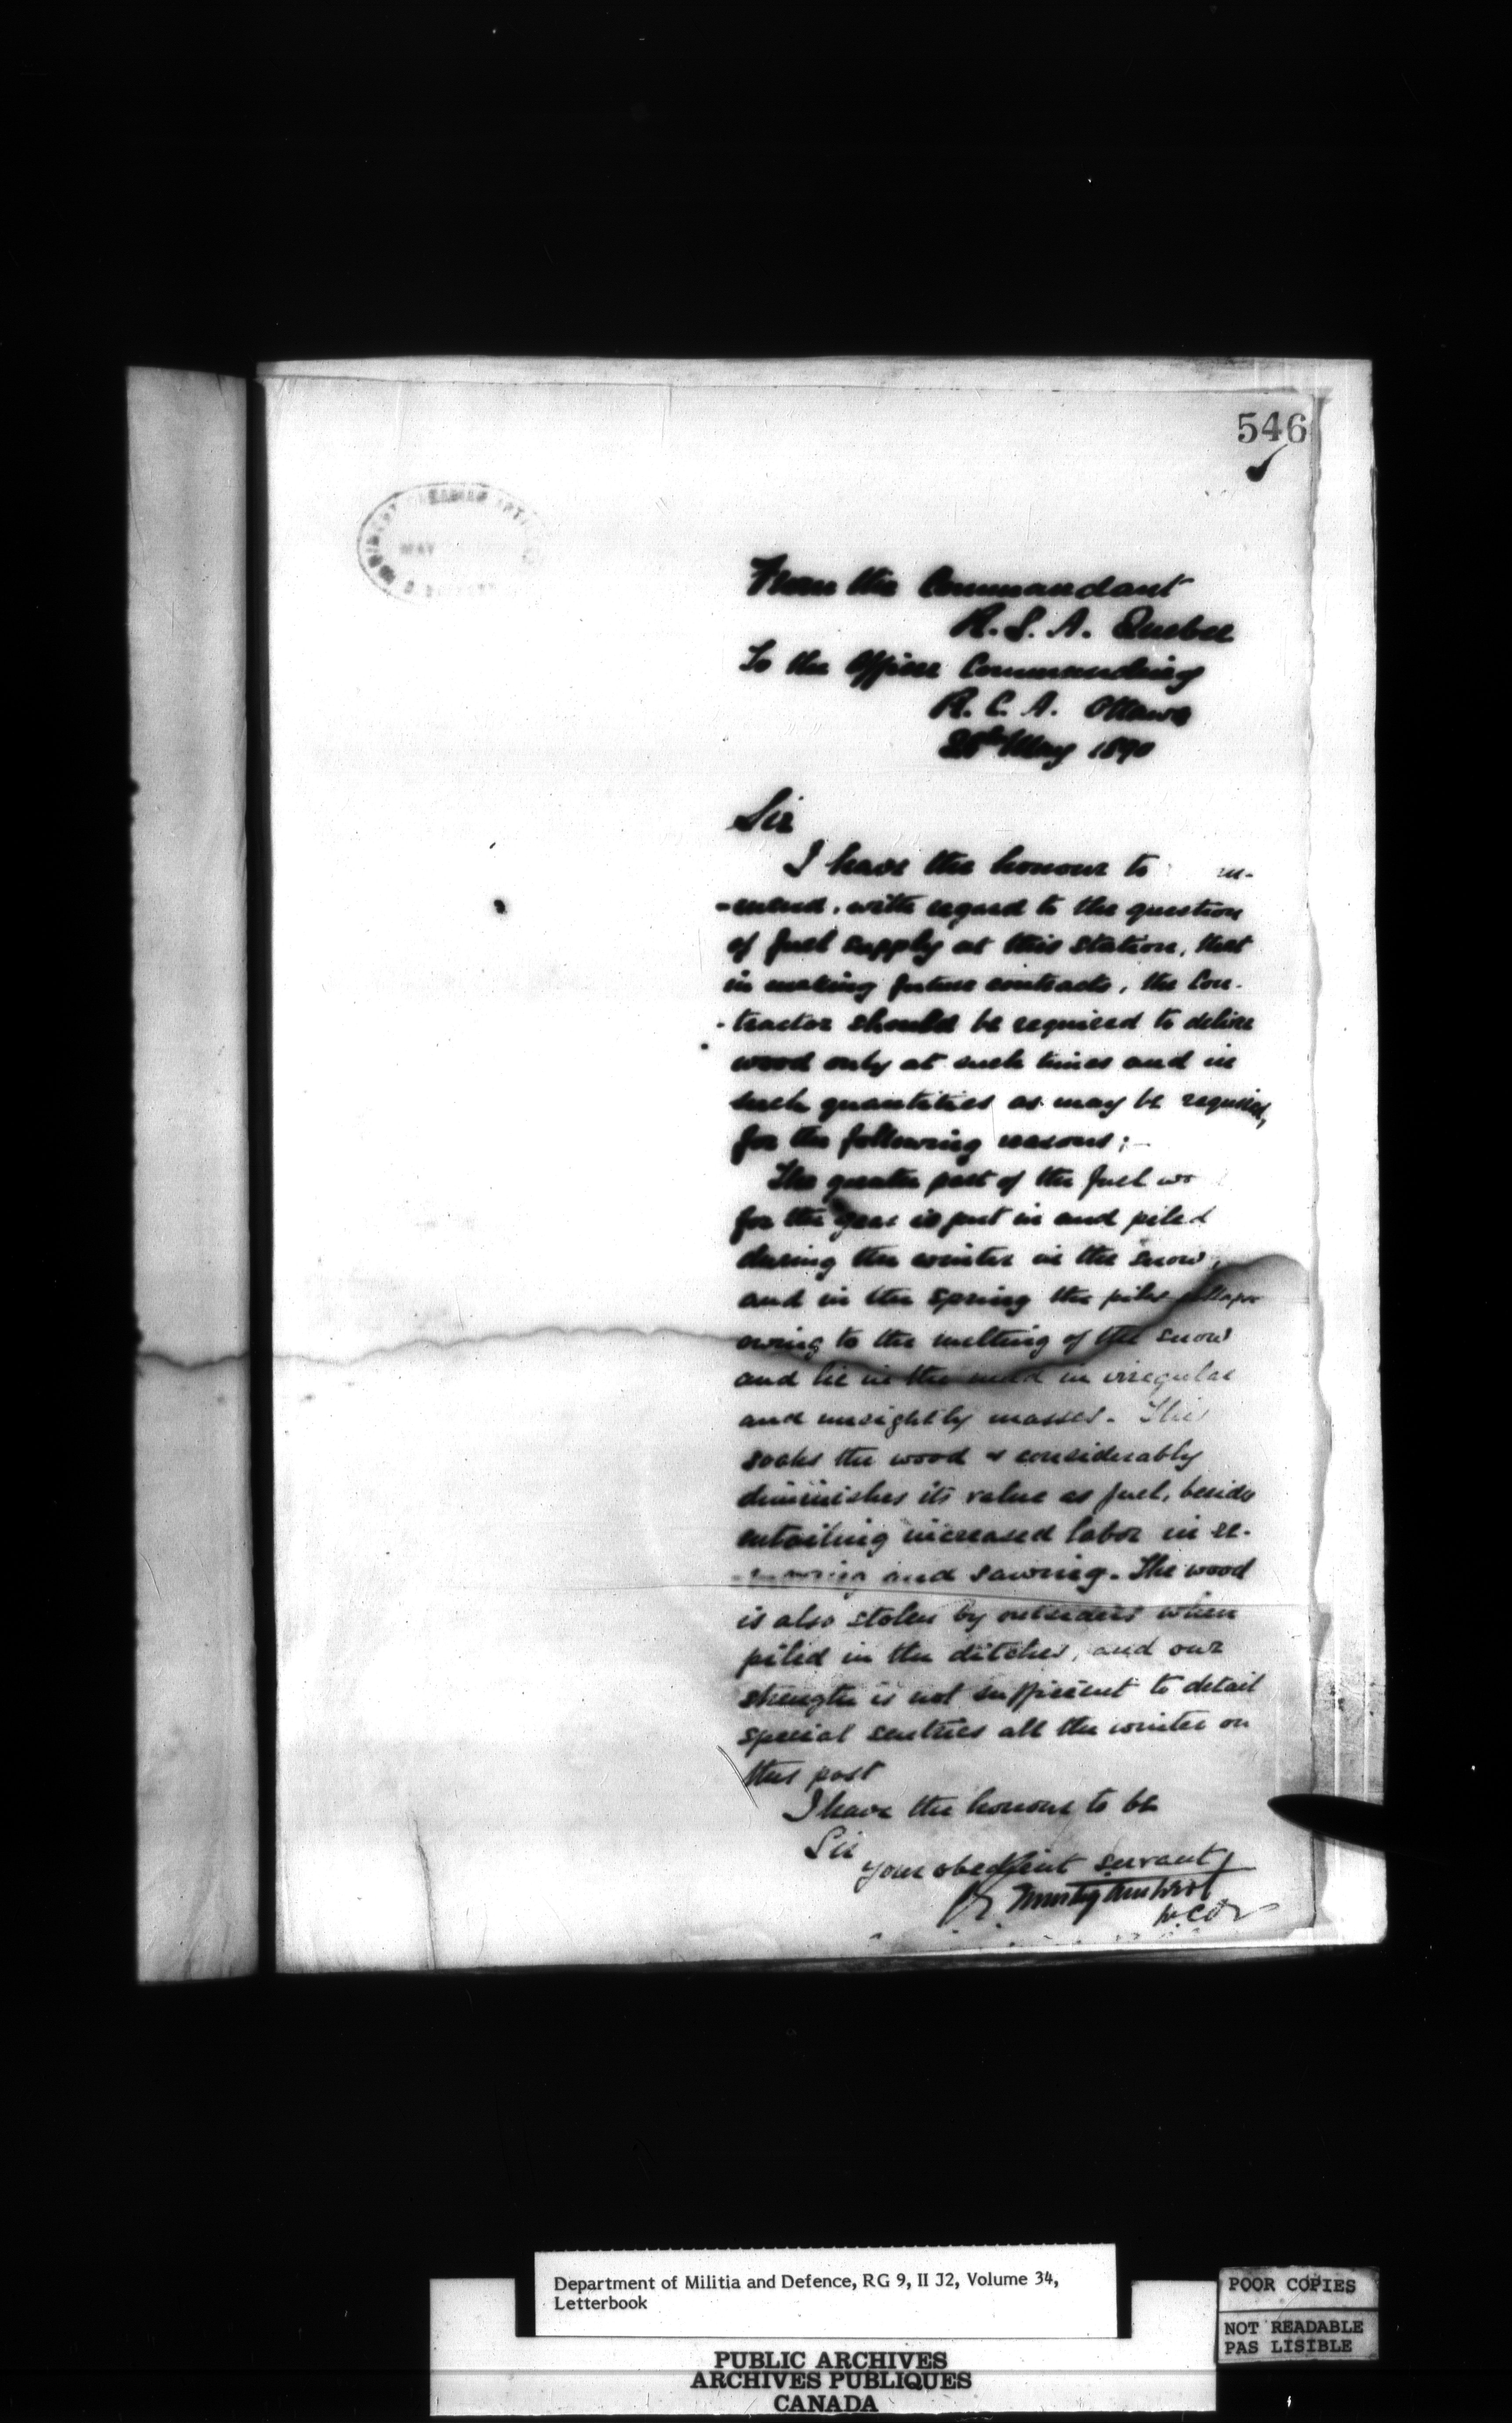 546
MAY
From the Commandant
R. S. A. Quebec
To the Officer Commanding
R. C. A. Ottawa
May 1890
Sir
I have the honour to
-mend, with regard to the question
of fuel supply at this station, that
in making future contracts, the Con-
-tractor should be required to deliver
wood only at such times and in
such quantities as may be required,
for the following reasons;-
The greater part of the fuel wo
for the year is put in and piled
during the winter in the snow,
and in the spring the piles collapse
owing to the melting of the snow
and lie in the mud in irregular
and unsightly masses. This
soaks the wood & considerably
diminishes its value as fuel, besides
entailing increased labor in re-
-moving and sawing. The wood
is also stolen by outsiders when
piled in the ditches, and our
strength is not sufficient to detail
special sentries all the winter on
this post
I have the honour to be
Sir
your obedient servant
Department of Militia and Defence, RG 9, II J2, Volume 34,
Letterbook
PUBLIC ARCHIVES
ARCHIVES PUBLIQUES
CANADA
POOR COPIES
NOT READABLE
PAS LISIBLE